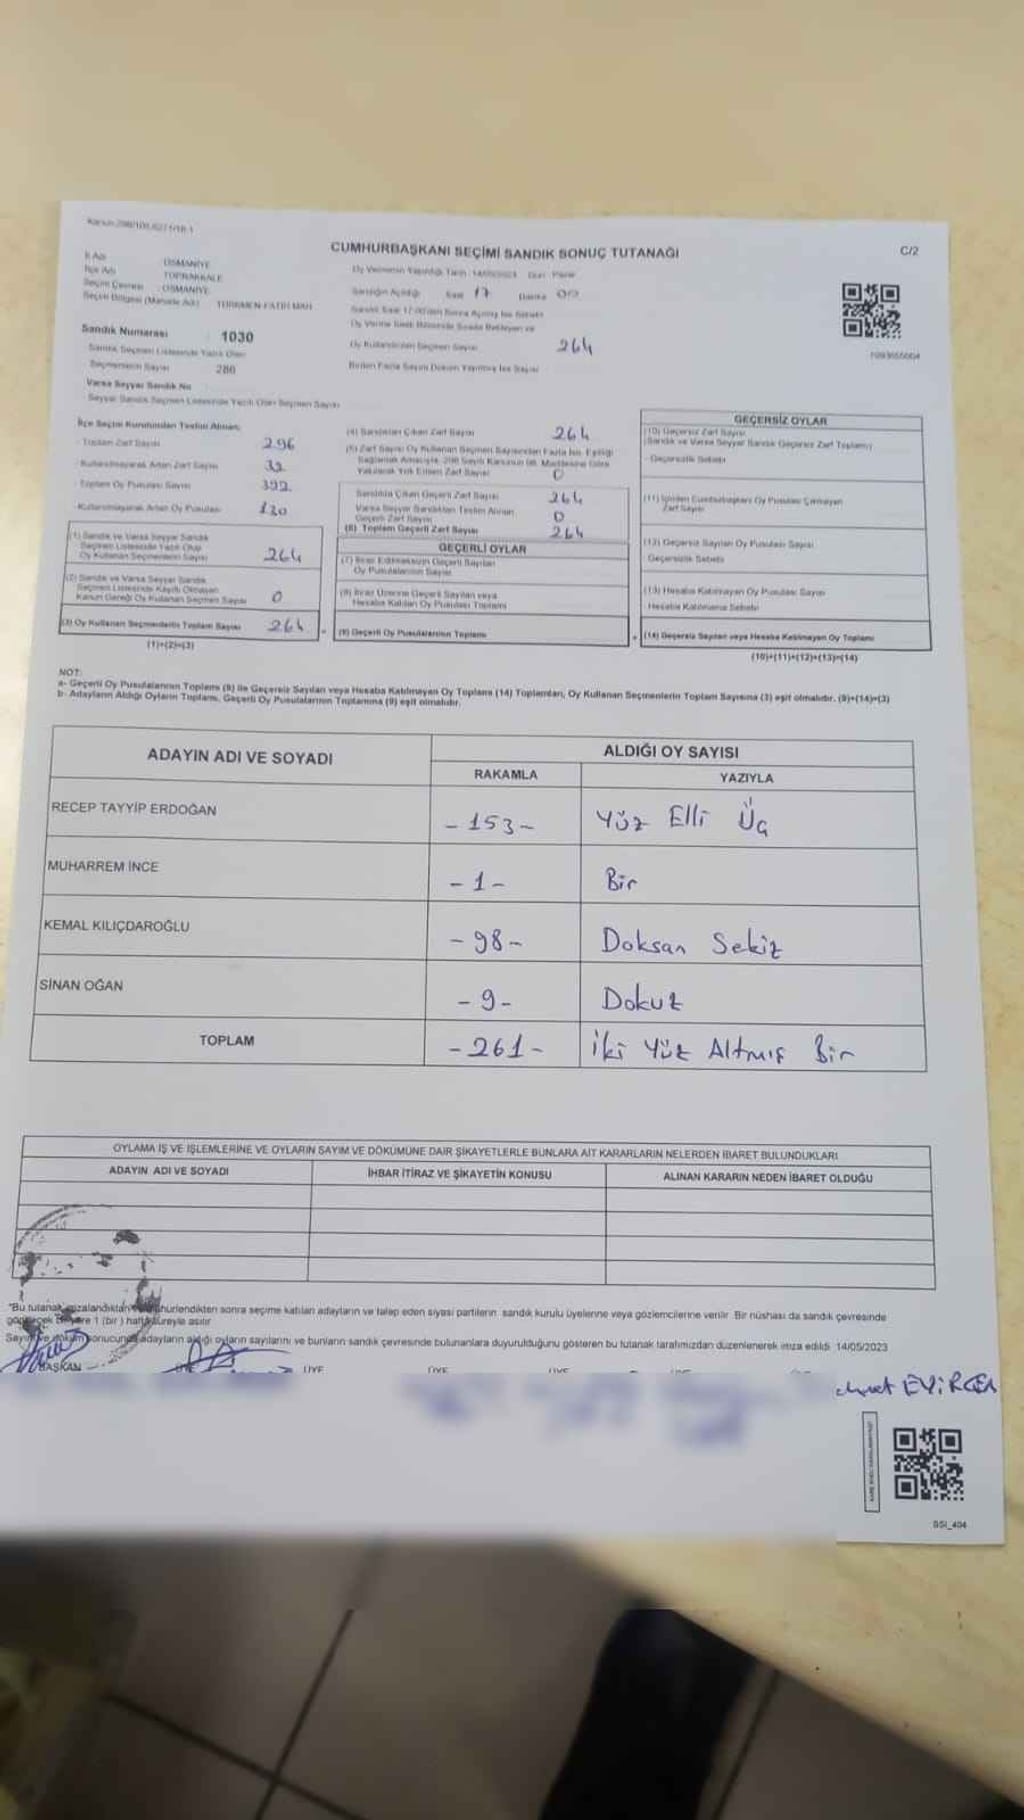 CUMHURBAŞKANI SEÇİMİ SANDIK SONUÇ TUTANAĞI
C/2
İl Adı OSMANİYE
İlçe Adı TOPRAKKALE
Seçim Çevresi OSMANİYE
Seçim Bölgesi (Mahalle Adı) TÜRKMEN-FATİH MAH
Sandık Numarası 1030
Seçmenlerin Sayısı 280
Varsa Seyyar Sandık No
Seyyar Sandık Seçmen Listesinde Yazılı Olan Seçmen Sayısı
Saat 17 Dakika 00
Oy Kullandırılan Seçmen Sayısı 264
İlçe Seçim Kurulundan Teslim Alınan;
Toplam Zarf Sayısı 296
Kullanılmayarak Artan Zarf Sayısı 32
Toplam Oy Pusulası Sayısı 392
Kullanılmayarak Artan Oy Pusulası 130
(1) Sandık ve Varsa Seyyar Sandık
Seçmen Listesinde Yazılı Olup
Oy Kullanan Seçmenlerin Sayısı 264
(2) Sandık ve Varsa Seyyar Sandık
Seçmen Listesinde Kayıtlı Olmayan
Kanun Gereği Oy Kullanan Seçmen Sayısı 0
(3) Oy Kullanan Seçmenlerin Toplam Sayısı 264
(1)+(2)=(3)
(4) Sandıktan Çıkan Zarf Sayısı 264
(5) Zarf Sayısı Oy Kullanan Seçmen Sayısından Fazla İse, Eşitliği
Sağlamak Amacıyla, 298 Sayılı Kanunun 98. Maddesine Göre
Yakılarak Yok Edilen Zarf Sayısı 0
Sandıkta Çıkan Geçerli Zarf Sayısı 264
Varsa Seyyar Sandıktan Teslim Alınan
Geçerli Zarf Sayısı 0
(6) Toplam Geçerli Zarf Sayısı 264
GEÇERLİ OYLAR
(7) İtiraz Edilmeksizin Geçerli Sayılan
Oy Pusulalarının Sayısı
(8) İtiraz Üzerine Geçerli Sayılan veya
Hesaba Katılan Oy Pusulası Toplamı
(9) Geçerli Oy Pusulalarının Toplamı
GEÇERSİZ OYLAR
(10) Geçersiz Zarf Sayısı
(Sandık ve Varsa Seyyar Sandık Geçersiz Zarf Toplamı)
Geçersizlik Sebebi
(11) İçinden Cumhurbaşkanı Oy Pusulası Çıkmayan
Zarf Sayısı
(12) Geçersiz Sayılan Oy Pusulası Sayısı
Geçersizlik Sebebi
(13) Hesaba Katılmayan Oy Pusulası Sayısı
Hesaba Katılmama Sebebi
(14) Geçersiz Sayılan veya Hesaba Katılmayan Oy Toplamı
(10)+(11)+(12)+(13)=(14)
NOT:
a- Geçerli Oy Pusulalarının Toplamı (9) ile Geçersiz Sayılan veya Hesaba Katılmayan Oy Toplamı (14) Toplamları, Oy Kullanan Seçmenlerin Toplam Sayısına (3) eşit olmalıdır. (9)+(14)=(3)
b- Adayların Aldığı Oyların Toplamı, Geçerli Oy Pusulalarının Toplamına (9) eşit olmalıdır.
ADAYIN ADI VE SOYADI ALDIĞI OY SAYISI
RAKAMLA YAZIYLA
RECEP TAYYİP ERDOĞAN -153- Yüz Elli Üç
MUHARREM İNCE -1- Bir
KEMAL KILIÇDAROĞLU -98- Doksan Sekiz
SİNAN OĞAN -9- Dokuz
TOPLAM -261- İki Yüz Altmış Bir
OYLAMA İŞ VE İŞLEMLERİNE VE OYLARIN SAYIM VE DÖKÜMÜNE DAİR ŞİKAYETLERLE BUNLARA AİT KARARLARIN NELERDEN İBARET BULUNDUKLARI
ADAYIN ADI VE SOYADI İHBAR İTİRAZ VE ŞİKAYETİN KONUSU ALINAN KARARIN NEDEN İBARET OLDUĞU
"Bu tutanak imzalandıktan mühürlendikten sonra seçime katılan adayların ve talep eden siyasi partilerin sandık kurulu üyelerine veya gözlemcilerine verilir. Bir nüshası da sandık çevresinde
1 (bir) hafta süreyle asılır
sonucunda adayların aldığı oyların sayılarını ve bunların sandık çevresinde bulunanlara duyurulduğunu gösteren bu tutanak tarafımızdan düzenlenerek imza edildi. 14/05/2023
BAŞKAN ÜYE ÜYE ÜYE ÜYE
SSI_404